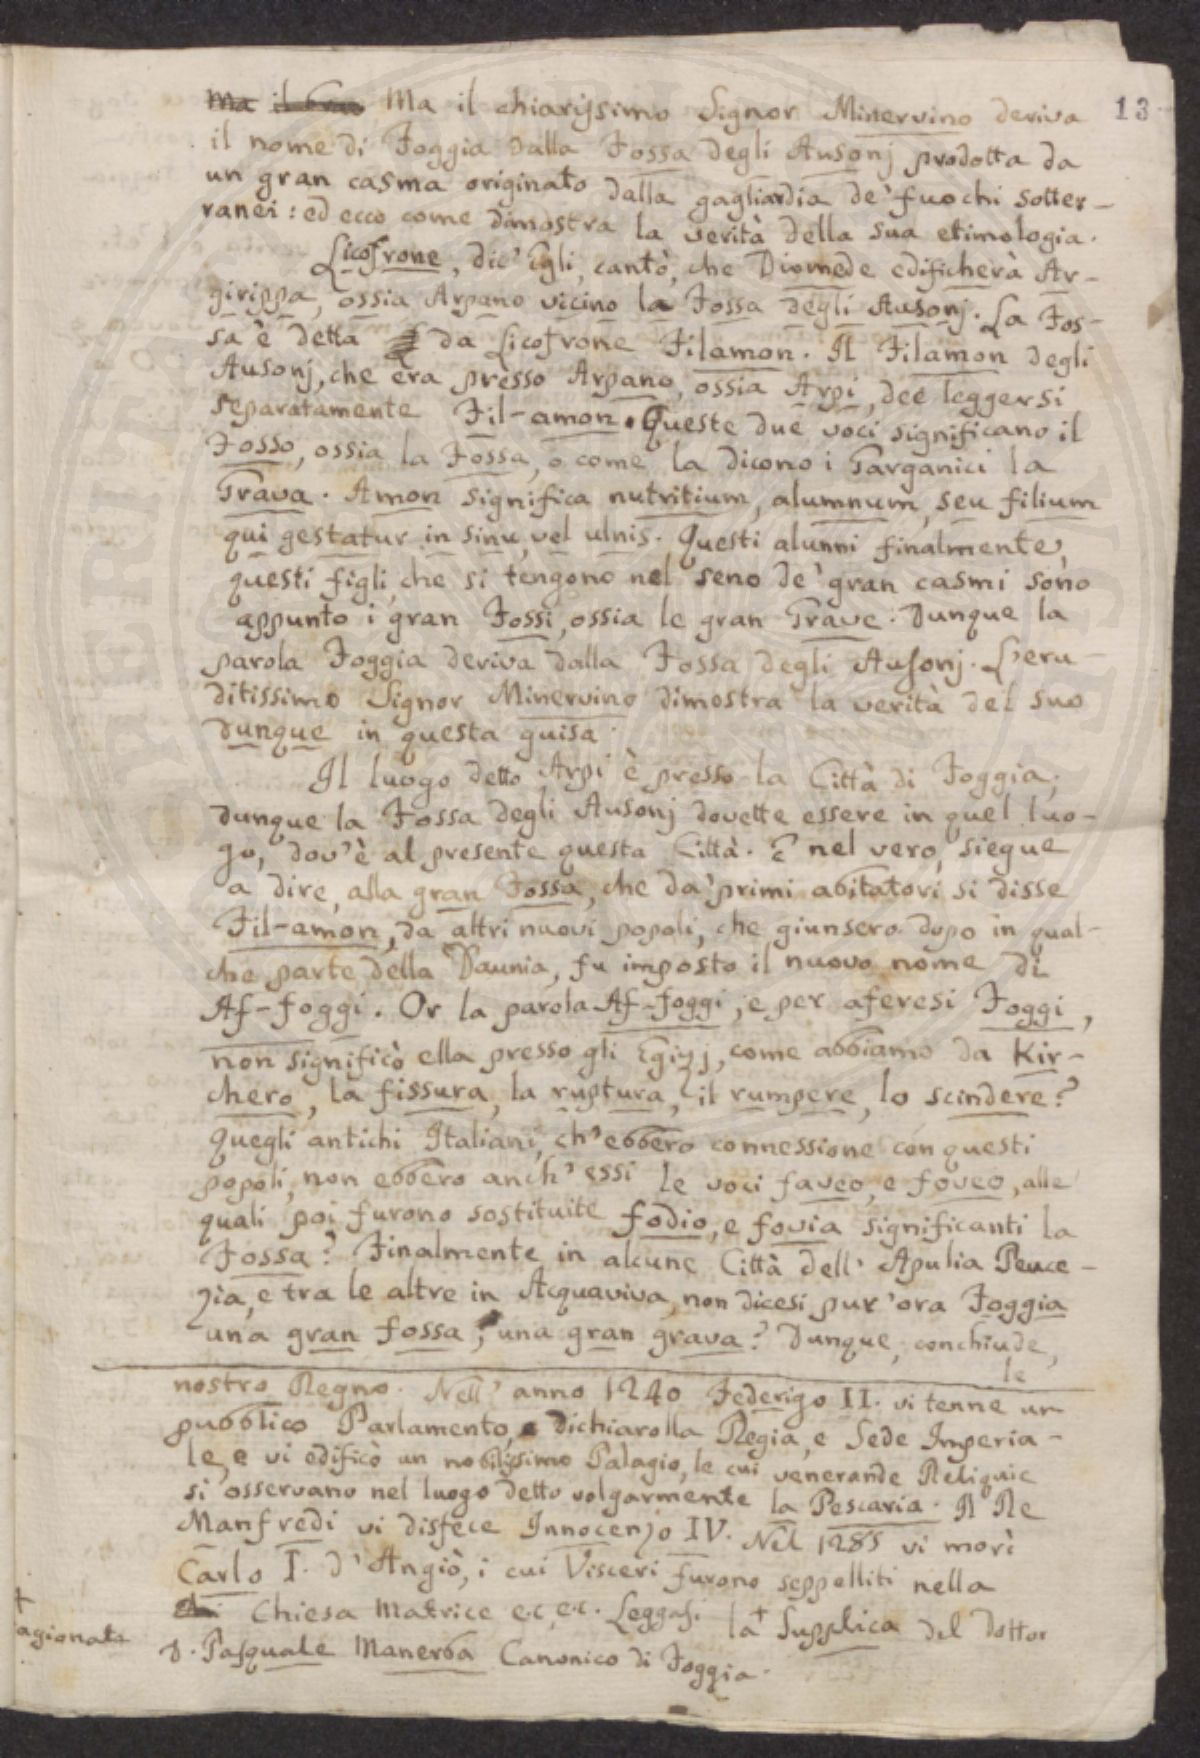 Ma il gran Ma il chiarissimo Signor Minervino deriva 13
il nome di Foggia dalla Fossa degli Ausonj prodotta da
un gran casma originato dalla gagliardia de' fuochi sotter-
ranei: ed ecco come dimostra la verità della sua etimologia.
Licofrone, dic' Egli, cantò, che Diomede edificherà Ar-
girippa, ossia Arpano vicino la Fossa degli Ausonj. La Fos-
sa è detta da Licofrone Filamon. Il Filamon degli
Ausonj, che era presso Arpano, ossia Arpi, dee leggersi
separatamente Fil-amon. Queste due voci significano il
Fosso, ossia la Fossa, o come la dicono i Garganici la
Grava. Amon significa nutritium, alumnum, seu filium
qui gestatur in sinu, vel ulnis. Questi alunni finalmente,
questi figli, che si tengono nel seno de' gran casmi sono
appunto i gran Fossi, ossia le gran Grave. Dunque la
parola Foggia deriva dalla Fossa degli Ausonj. L'eru-
ditissimo Signor Minervino dimostra la verità del suo
dunque in questa guisa.
Il luogo detto Arpi è presso la Città di Foggia;
dunque la Fossa degli Ausonj dovette essere in quel luo-
go, dov'è al presente questa Città. E nel vero, siegue
a dire, alla gran Fossa, che da' primi abitatori si disse
Fil-amon, da altri nuovi popoli, che giunsero dopo in qual-
che parte della Daunia, fu imposto il nuovo nome di
Af-foggi. Or la parola Af-foggi, e per aferesi Foggi,
non significò ella presso gli Egizj, come abbiamo da Kir-
chero, la fissura, la ruptura, il rumpere, lo scindere?
Quegli antichi Italiani, ch' ebbero connessione con questi
popoli, non ebbero anch' essi le voci faveo, e foveo, alle
quali poi furono sostituite fodio, e fovia significanti la
Fossa? Finalmente in alcune Città dell' Apulia Peuce-
zia, e tra le altre in Acquaviva, non dicesi pur'ora Foggia
una gran fossa, una gran grava? Dunque, conchiude,
le
nostro Regno. Nell' anno 1240 Federigo II. vi tenne un
pubblico Parlamento, e dichiarolla Regia, e Sede Imperia-
le, e vi edificò un nobilissimo Palagio, le cui venerande Reliquie
si osservano nel luogo detto volgarmente la Pescaria. Il Re
Manfredi vi disfece Innocenzo IV. Nel 1285 vi morì
Carlo I. d' Angiò, i cui Visceri furono seppelliti nella
Chiesa Matrice e.c. e.c. Leggasi la + Supplica del Dottor
+
agionata
D. Pasquale Manerba Canonico di Foggia.